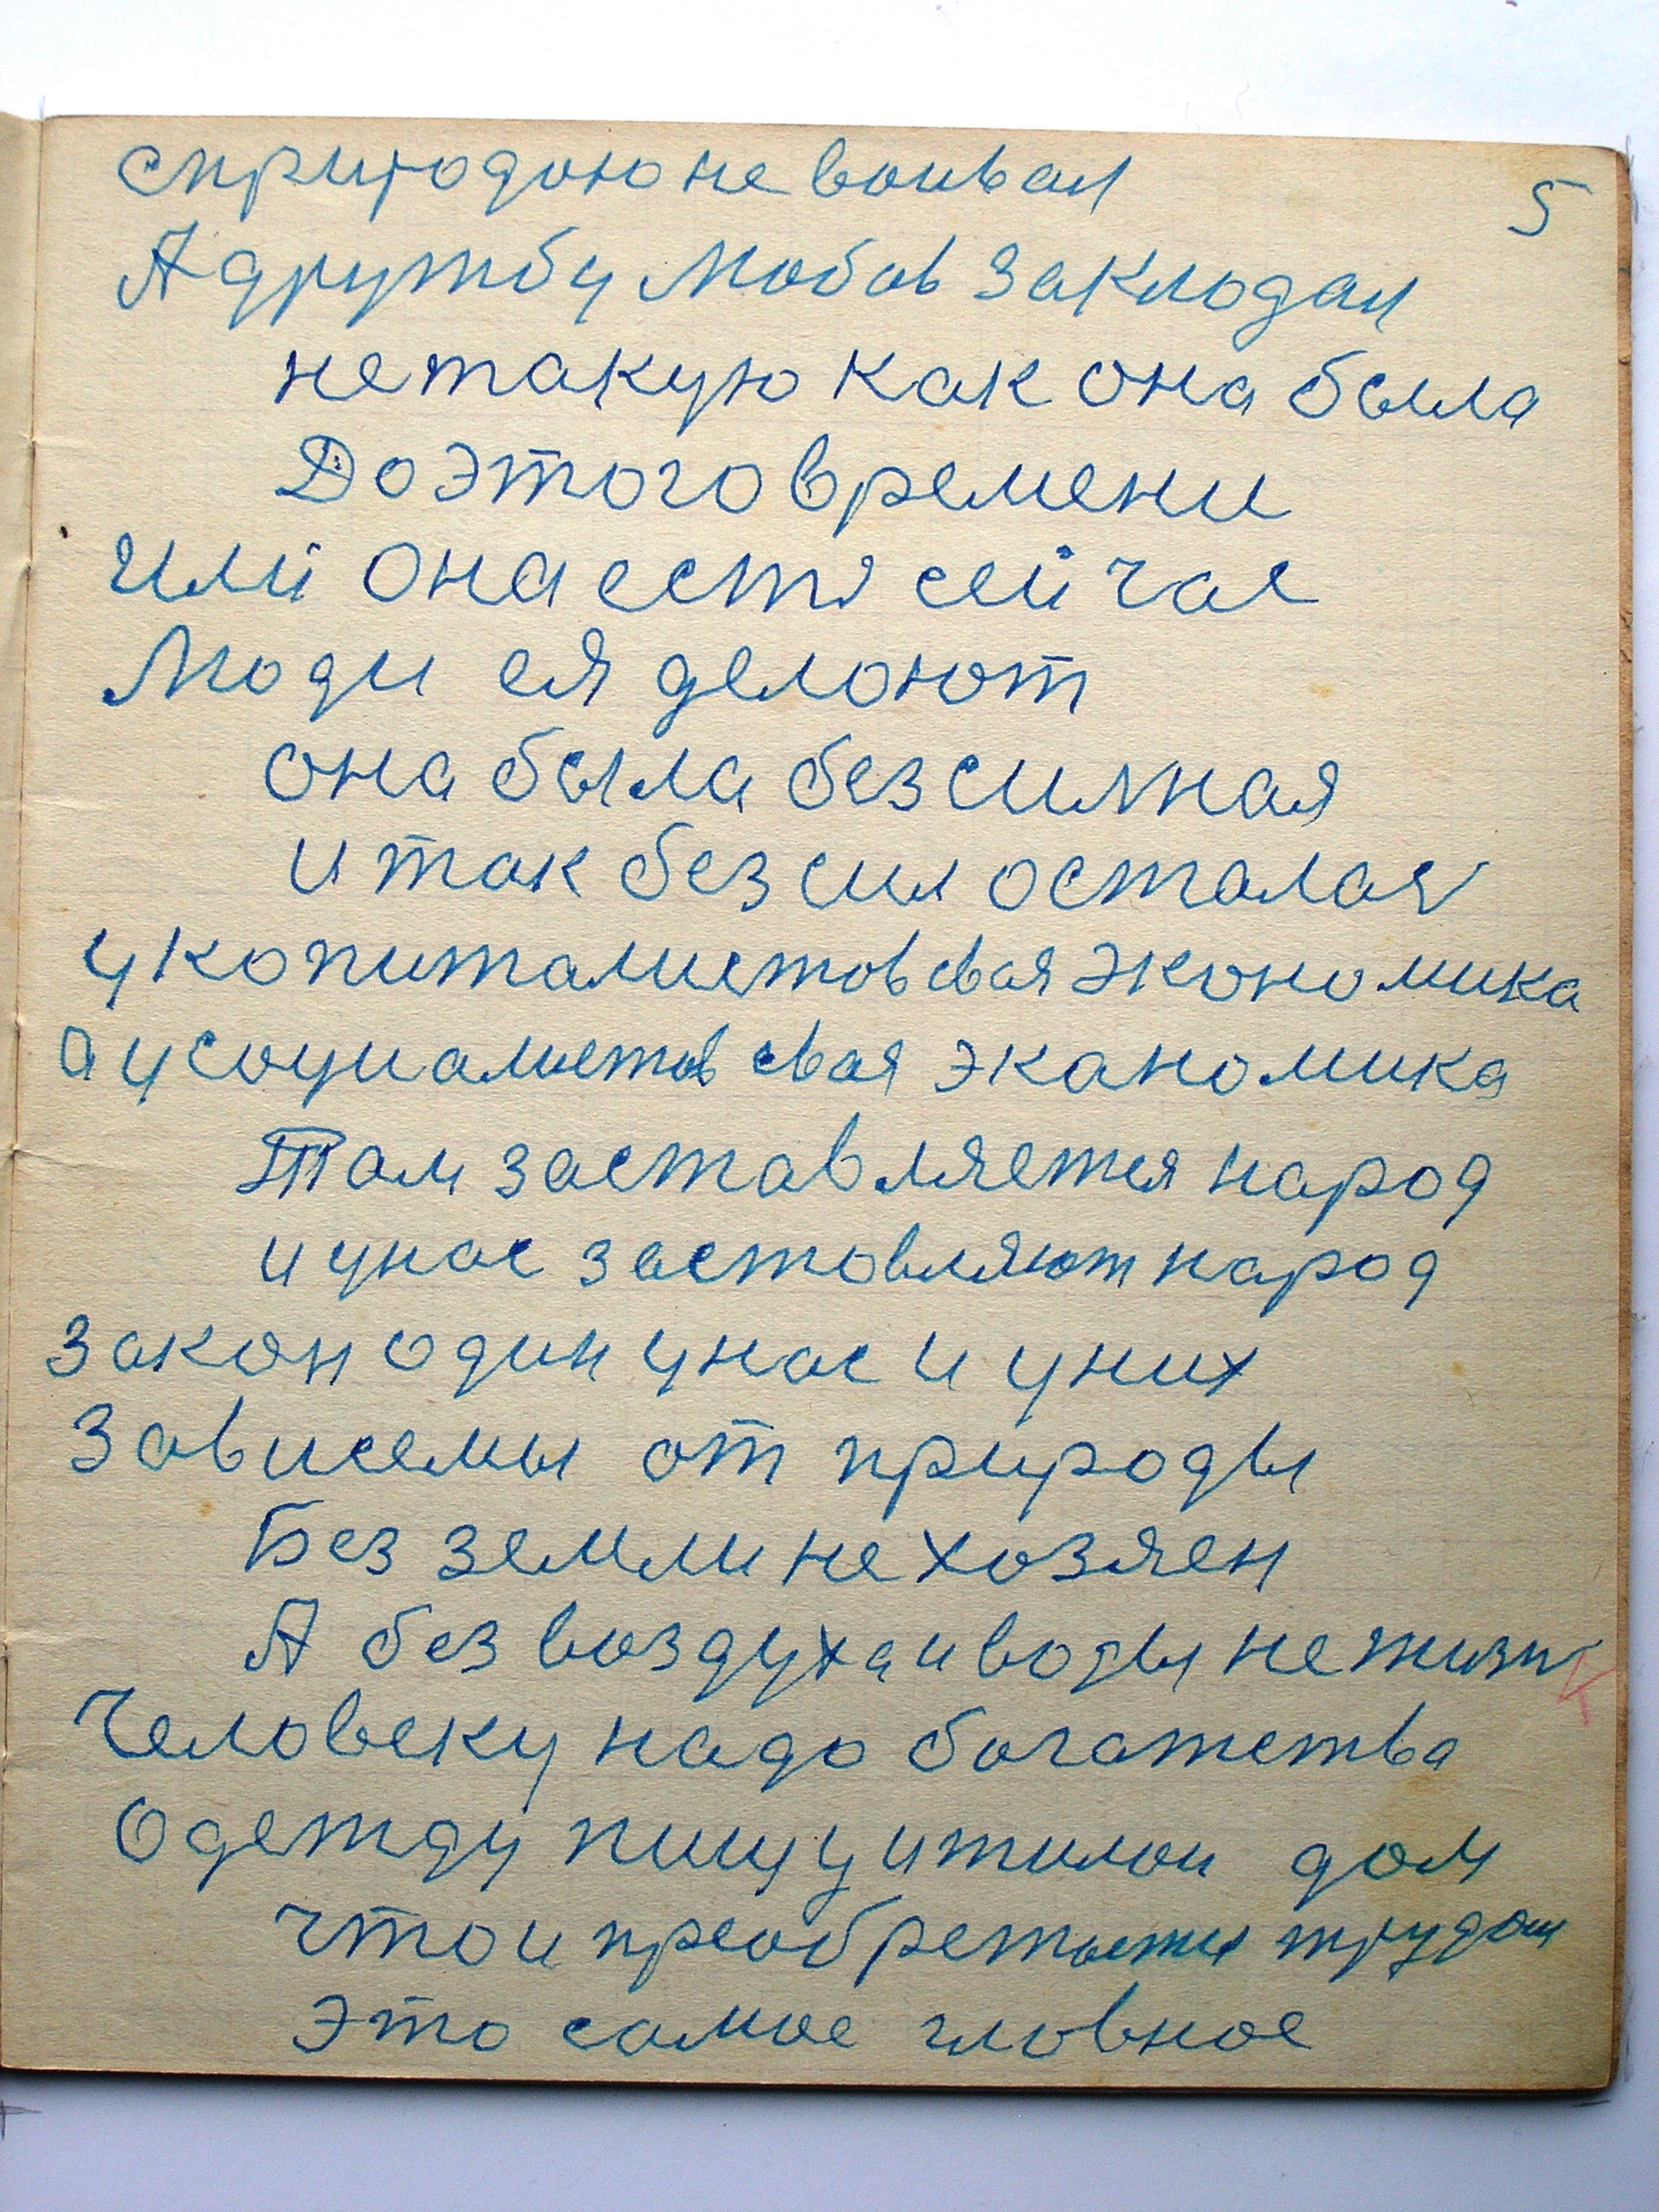 с природою не воивал
5
А дружбу Любов заклодал
не такую как она была
До этого времени
или она есть сейчас
Люди ея делоют
она была безсилная
и так без сил осталась
у копиталистов своя экономика
а у социалистов своя эканомика
Там заставляется народ
и у нас застовляют народ
Закон один у нас и у них
Зависемы от природы
Без земли не хозяен
А без воздуха и воды не жизнь
Человеку надо богатства
Одежду пищу и жилои дом
что и преобретается трудом
Это самое гловное